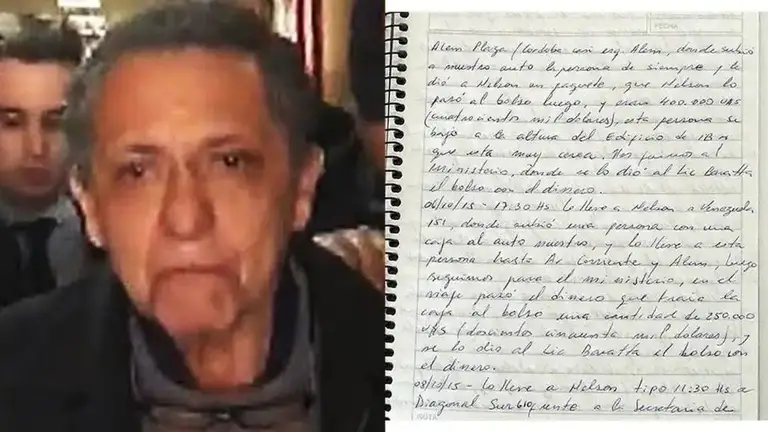 FECHA
Alem Plaza (Cordoba casi esq. Alem, donde subió
a nuestro auto la persona de siempre y le
dió a Nelson un paquete, que Nelson lo
pasó al bolso luego, y eran 400.000 U$S
(cuatrocientos mil dolares), esta persona se
bajo a la altura del Edificio de IBM
que esta muy cerca. Nos fuimos al
Ministerio, donde se lo dió al Lic Baratta
el bolso con el dinero.
06/10/15 - 17:30 Hs Lo lleve a Nelson a Venezuela
151, donde subió una persona con una
caja al auto nuestro, y lo lleve a esta
persona hasta Av Corriente y Alem, luego
seguimos para el ministerio, en el
viaje pasó el dinero que traia la
caja al bolso una cantidad de 250.000
U$S (doscientos cincuenta mil dolares), y
se lo dio al Lic Baratta el bolso con
el dinero.
08/10/15 - Lo lleve a Nelson tipo 11:30 Hs a
Diagonal Sur 610 frente a la Secretaria de
NOTA